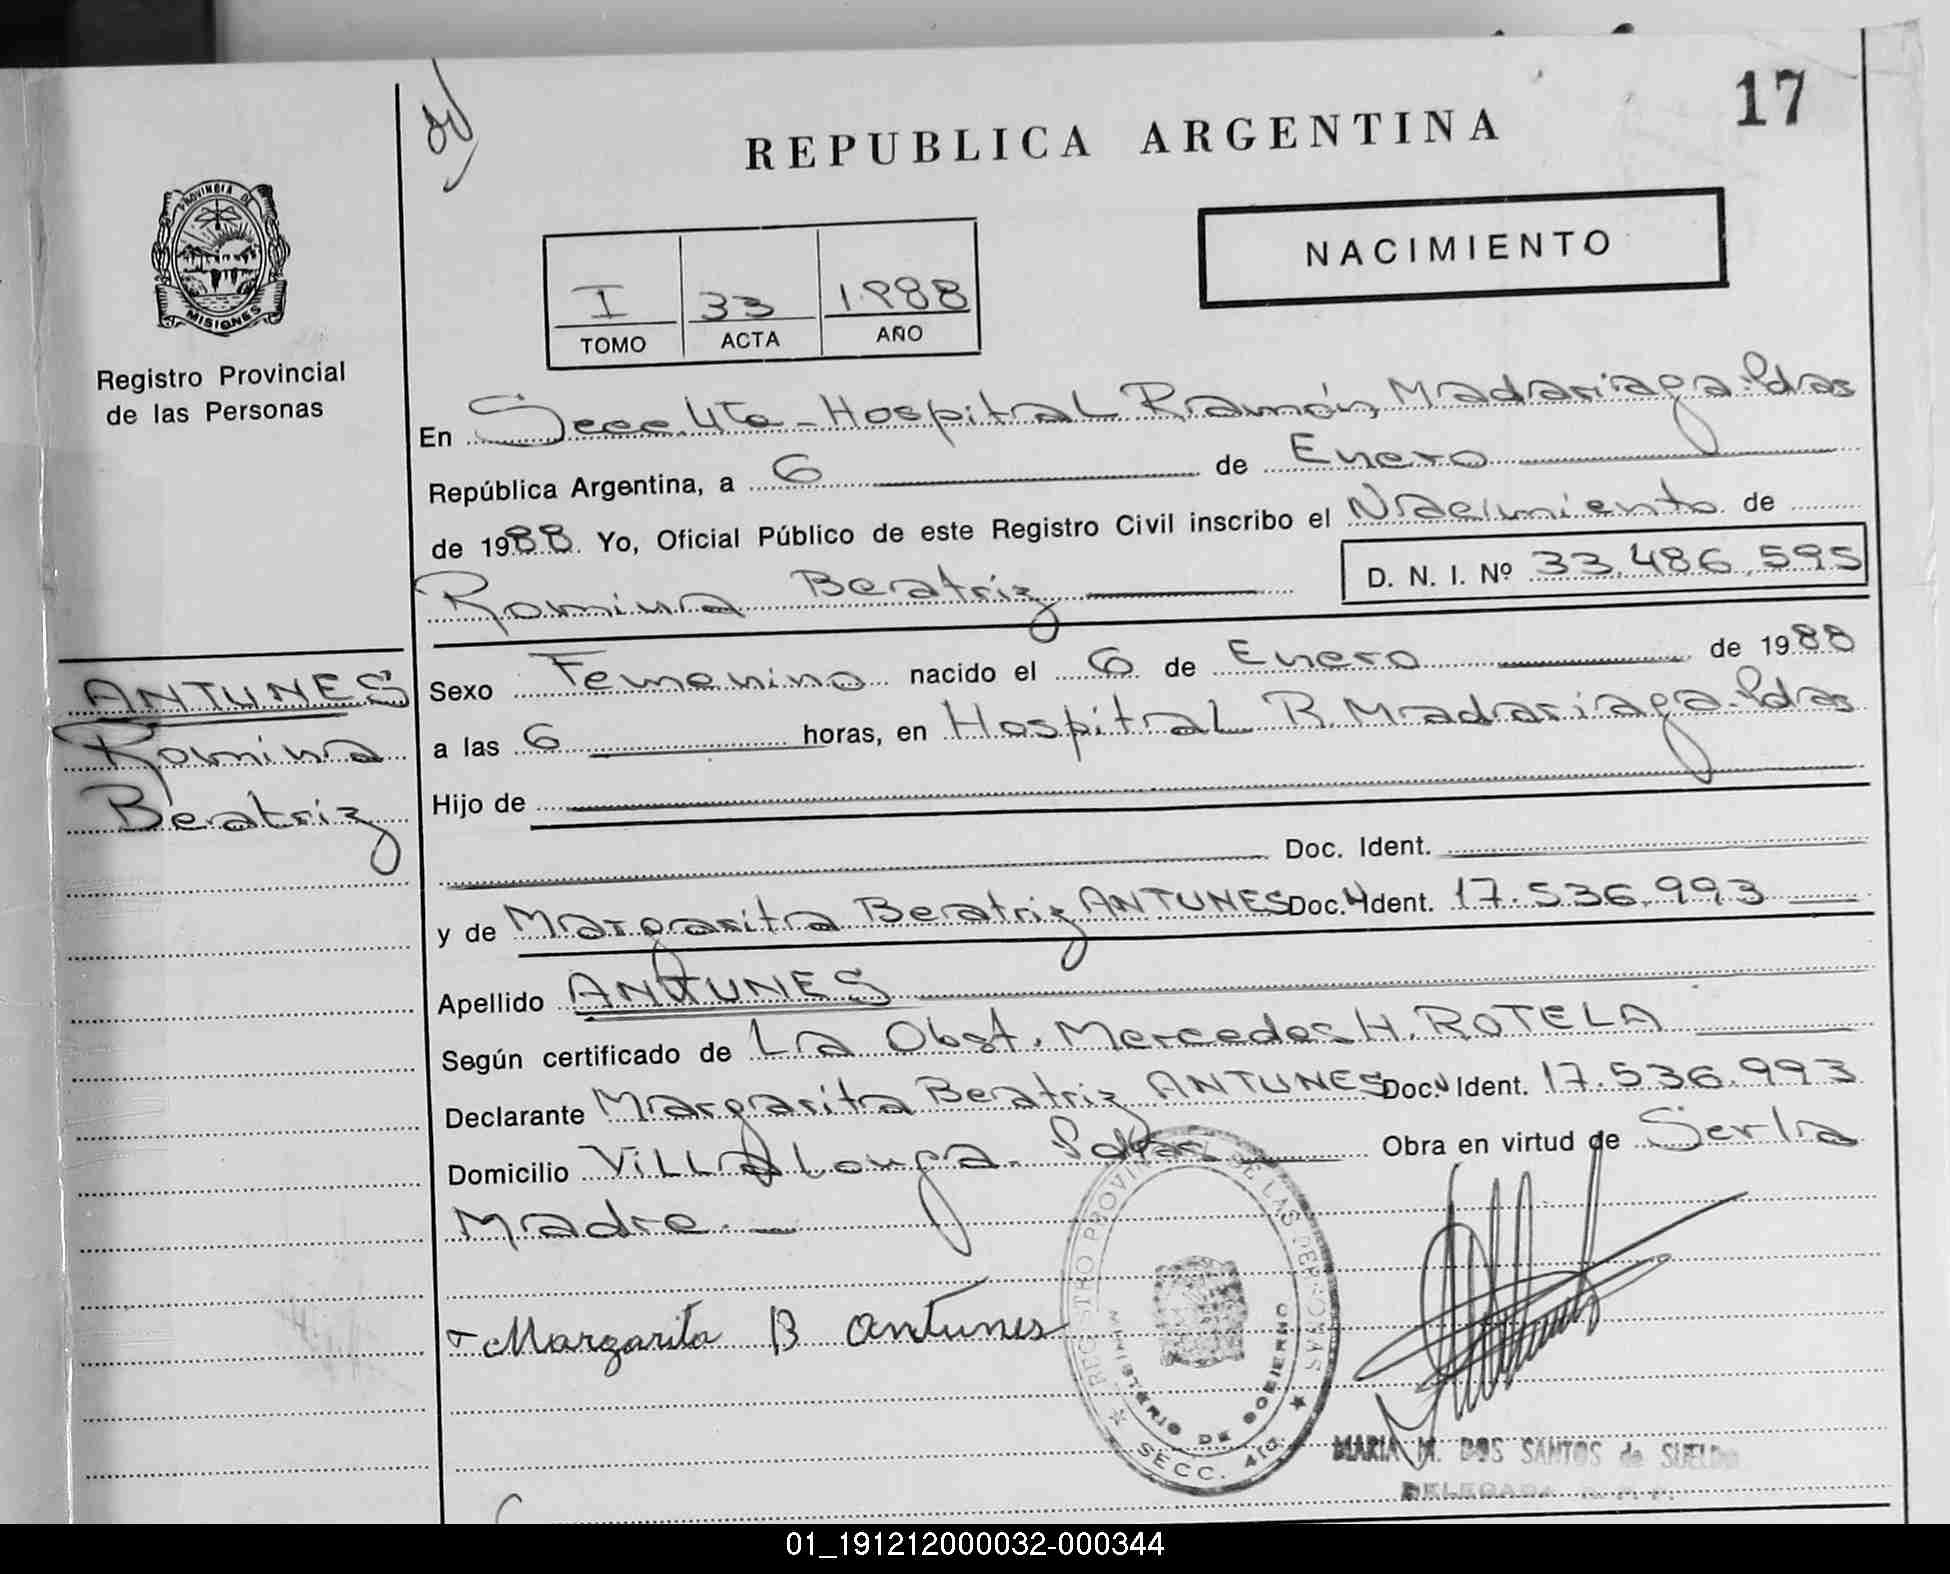 17
REPUBLICA ARGENTINA
NACIMIENTO
PROVINCIA DE
MISIONES
Registro Provincial
de las Personas
I 33 1988
TOMO ACTA AÑO
En Secc. 4ta - Hospital Ramón Madariaga. Pdas
República Argentina, a 6 de Enero
de 1988. Yo, Oficial Público de este Registro Civil inscribo el Nacimiento de
Romina Beatriz D. N. I. Nº 33.486.595
ANTUNES
Romina
Beatriz
Sexo Femenino nacido el 6 de Enero de 1988
a las 6 horas, en Hospital R. Madariaga. Pdas
Hijo de
Doc. Ident.
y de Margarita Beatriz ANTUNES Doc. Ident. 17.536.993
Apellido ANTUNES
Según certificado de La Obst. Mercedes H. ROTELA
Declarante Margarita Beatriz ANTUNES Doc. Ident. 17.536.993
Domicilio Villa Longa. Pdas Obra en virtud de Ser la
Madre.
Margarita B Antunes
REGISTRO PROVINCIAL DE LAS PERSONAS
MINISTERIO DE GOBIERNO
SECC. 4ta.
MARIA M. DOS SANTOS de SUELDO
DELEGADA R. P. P.
01_191212000032-000344